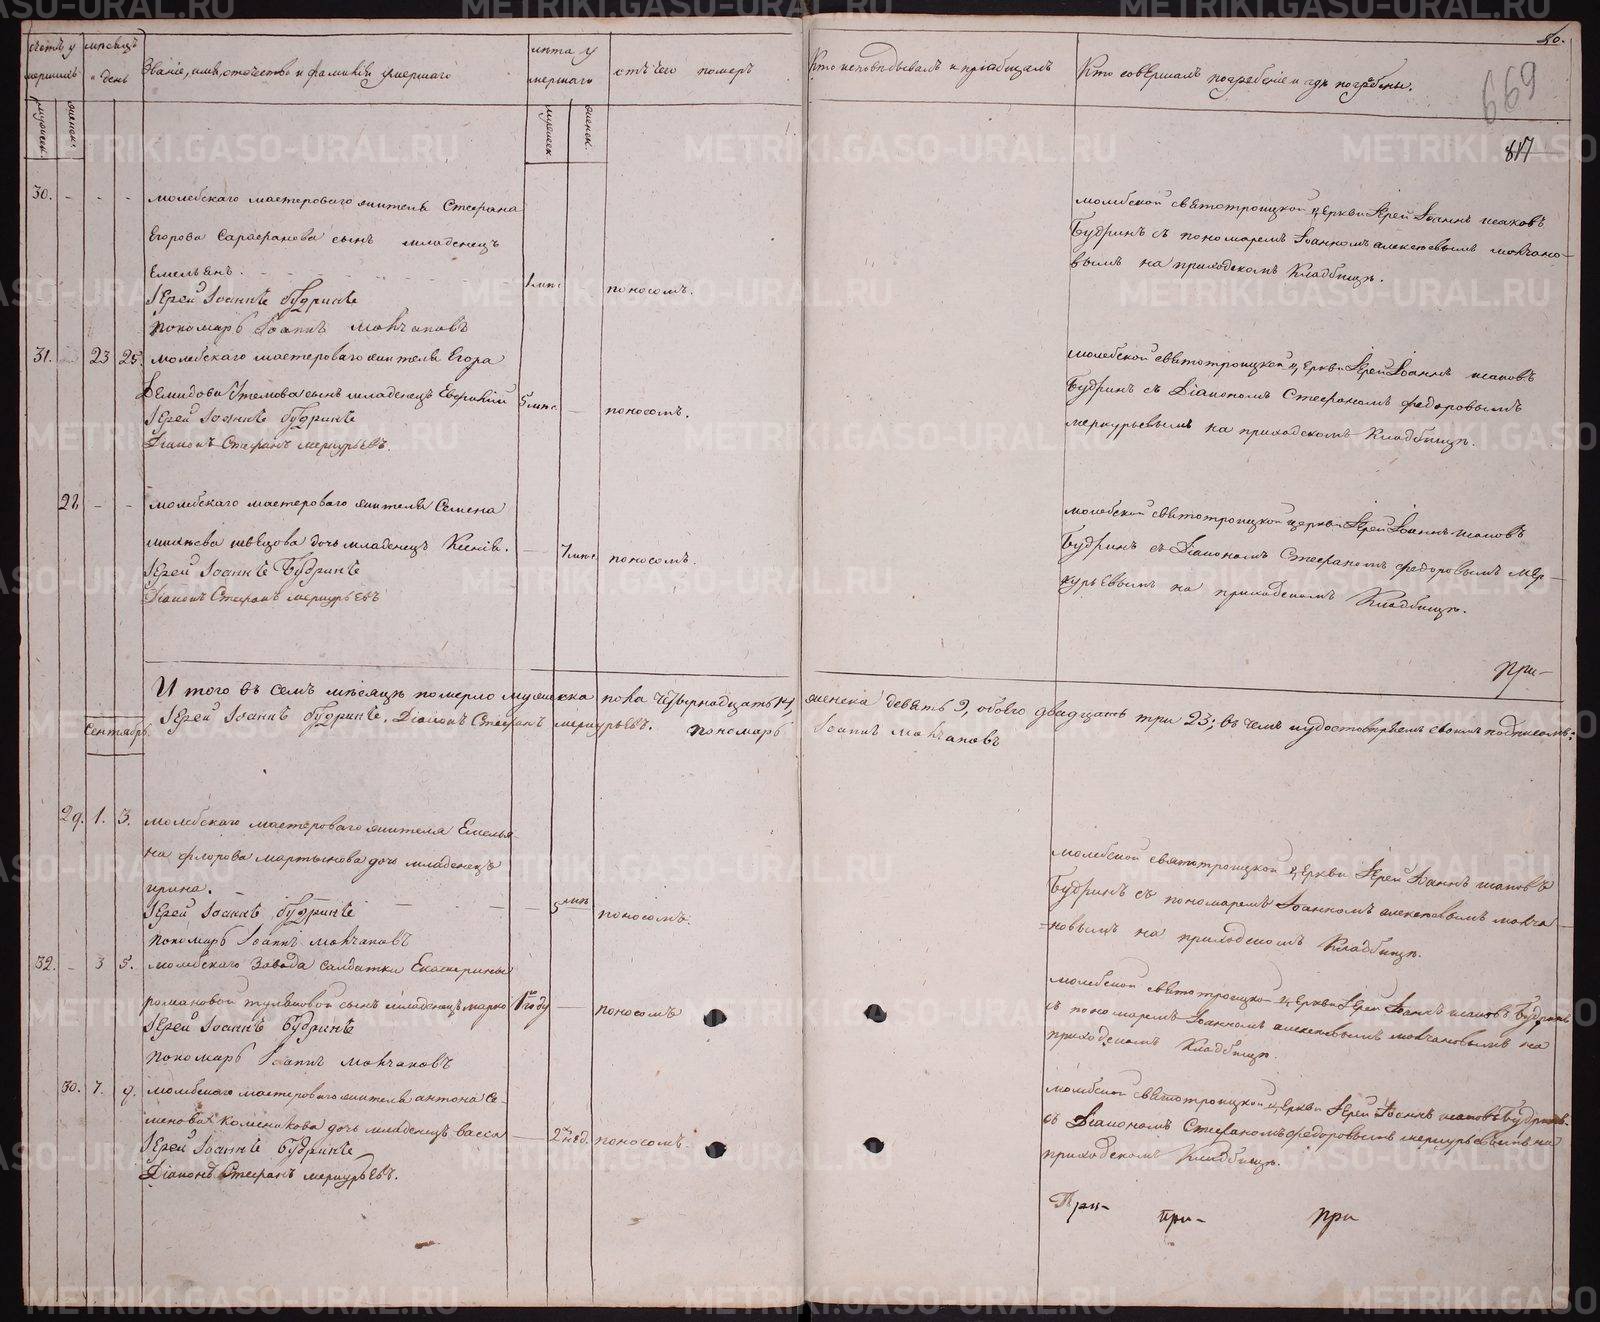 Счетъ умершихъ
мѣсяцъ и день
Званіе, имя, отечество и фамилія умершаго
лѣта умершаго
отъ чего померъ
Кто исповѣдывалъ и пріобщалъ
Кто совершалъ погребеніе и гдѣ погребены.
80.
669
817
мужеск.
женск.
мужеск
женск.
30. - - - молебскаго мастероваго жителя Стефана
Егорова Сарафанова сынъ младенецъ
Емельянъ.
1 мѣс.
поносомъ.
Іерей Іоаннъ Будринъ
Пономарь Іоаннъ Молчановъ
молебской святотроицкой церкви Іерей Іоаннъ исаковъ
Будринъ съ пономаремъ Іоанномъ алексѣевымъ молчано-
вымъ на приходскомъ Кладбищѣ.
31. 23 25. молебскаго мастероваго жителя Егора
Демидова сынъ младенецъ
5 мѣс.
поносомъ.
Іерей Іоаннъ Будринъ
Діаконъ Стефанъ меркурьевъ.
молебской святотроицкой церкви Іерей Іоаннъ исаковъ
Будринъ съ Діакономъ Стефаномъ федоровымъ
меркурьевымъ на приходскомъ Кладбищѣ.
28 - - молебскаго мастероваго жителя Семена
швецова дочь младенецъ Ксенія.
7 мѣс.
поносомъ.
Іерей Іоаннъ Будринъ
Діаконъ Стефанъ меркурьевъ
молебской святотроицкой церкви Іерей Іоаннъ исаковъ
Будринъ съ Діакономъ Стефаномъ федоровымъ мер-
курьевымъ на приходскомъ Кладбищѣ.
При-
И того въ семъ мѣсяцѣ померло мужеска пола четырнадцать 14, женска девять 9, обоего двадцать три 23; въ чемъ и удостовѣряемъ своимъ подписомъ:
Іерей Іоаннъ Будринъ. Діаконъ Стефанъ меркурьевъ. пономарь Іоаннъ Молчановъ
Сентябрь
29. 1. 3. молебскаго мастероваго жителя Емелья-
на флорова мартынова дочь младенецъ
ирина.
5 мѣс
поносомъ.
Іерей Іоаннъ Будринъ
Пономарь Іоаннъ Молчановъ
молебской святотроицкой церкви Іерей Іоаннъ исаковъ
Будринъ съ пономаремъ Іоанномъ алексѣевымъ молча-
новымъ на приходскомъ Кладбищѣ.
32. - 3 5. молебскаго Завода салдатки Екатерины
романовой сынъ младенецъ марко
1го году
поносомъ
Іерей Іоаннъ Будринъ
Пономарь Іоаннъ Молчановъ
молебской святотроицкой церкви Іерей Іоаннъ исаковъ Будринъ
съ пономаремъ Іоанномъ алексѣевымъ молчановымъ на
приходскомъ Кладбищѣ.
30. 7. 9. молебскаго мастероваго жителя антона Се-
менова Колесникова дочь младенецъ васса
2 нед.
поносомъ.
Іерей Іоаннъ Будринъ
Діаконъ Стефанъ меркурьевъ.
молебской святотроицкой церкви Іерей Іоаннъ исаковъ Будринъ.
съ Діакономъ Стефаномъ федоровымъ меркурьевымъ на
приходскомъ Кладбищѣ.
При- при- при
METRIKI.GASO-URAL.RU